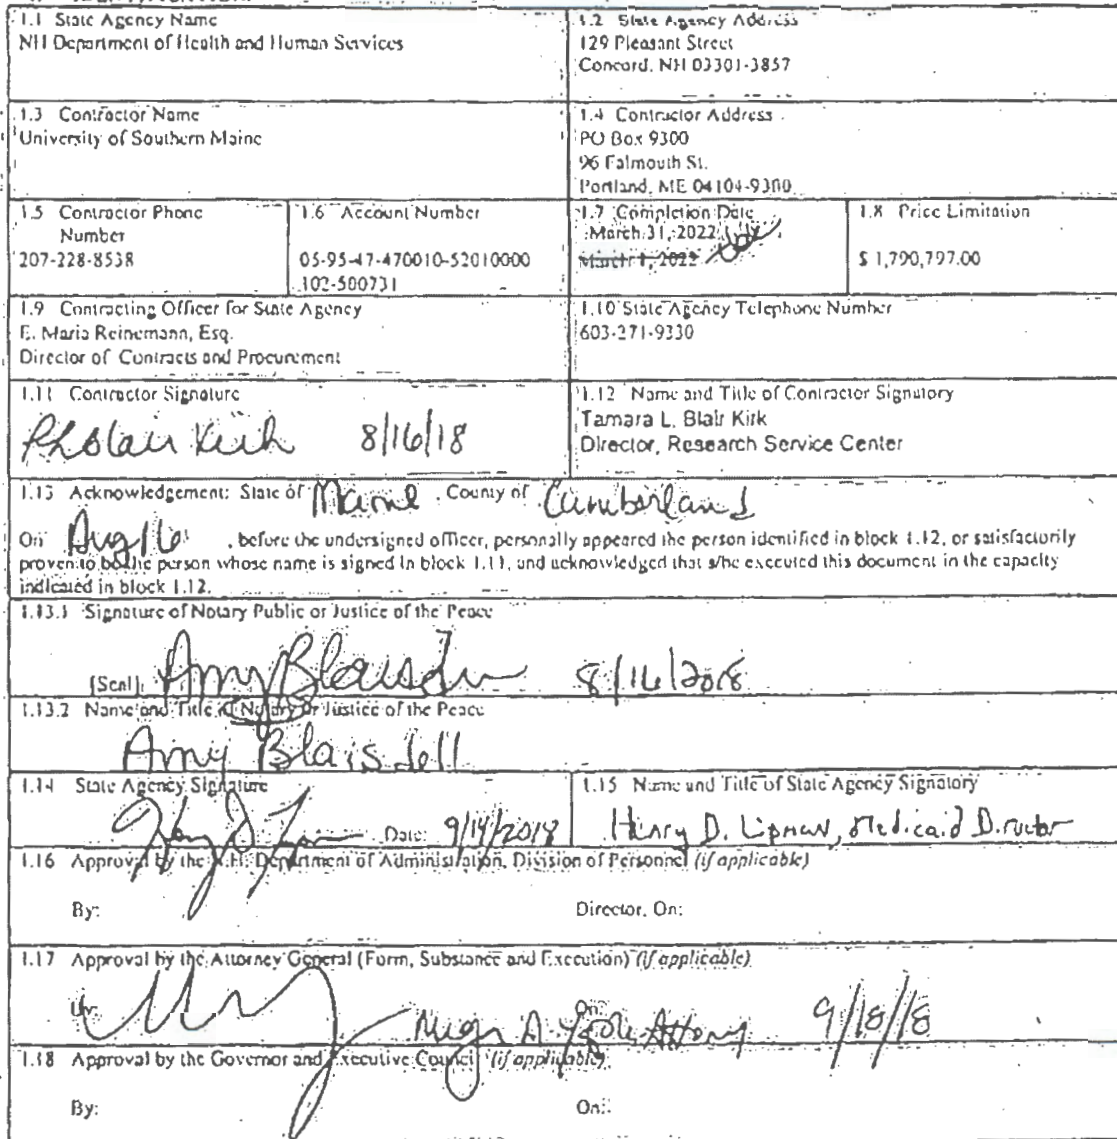 1.1 State Agency Name
NH Department of Health and Human Services
1.2 State Agency Address
129 Pleasant Street
Concord, NH 03301-3857
1.3 Contractor Name
University of Southern Maine
1.4 Contractor Address
PO Box 9300
96 Falmouth St.
Portland, ME 04104-9300
1.5 Contractor Phone
Number
207-228-8538
1.6 Account Number
05-95-47-470010-52010000
102-500731
1.7 Completion Date
March 31, 2022
March 1, 2022
1.8 Price Limitation
$ 1,790,797.00
1.9 Contracting Officer for State Agency
E. Maria Reinemann, Esq.
Director of Contracts and Procurement
1.10 State Agency Telephone Number
603-271-9330
1.11 Contractor Signature
Blair Kirk 8/16/18
1.12 Name and Title of Contractor Signatory
Tamara L. Blair Kirk
Director, Research Service Center
1.13 Acknowledgement: State of Maine , County of Cumberland
On Aug 16 , before the undersigned officer, personally appeared the person identified in block 1.12, or satisfactorily
proven to be the person whose name is signed in block 1.11, and acknowledged that s/he executed this document in the capacity
indicated in block 1.12.
1.13.1 Signature of Notary Public or Justice of the Peace
[Seal] Amy Blaisdell 8/16/2018
1.13.2 Name and Title of Notary or Justice of the Peace
Amy Blaisdell
1.14 State Agency Signature
Date: 9/14/2018
1.15 Name and Title of State Agency Signatory
Henry D. Lipman, Medicaid Director
1.16 Approval by the N.H. Department of Administration, Division of Personnel (if applicable)
By: Director, On:
1.17 Approval by the Attorney General (Form, Substance and Execution) (if applicable)
By: On: Attorney 9/18/18
1.18 Approval by the Governor and Executive Council (if applicable)
By: On: